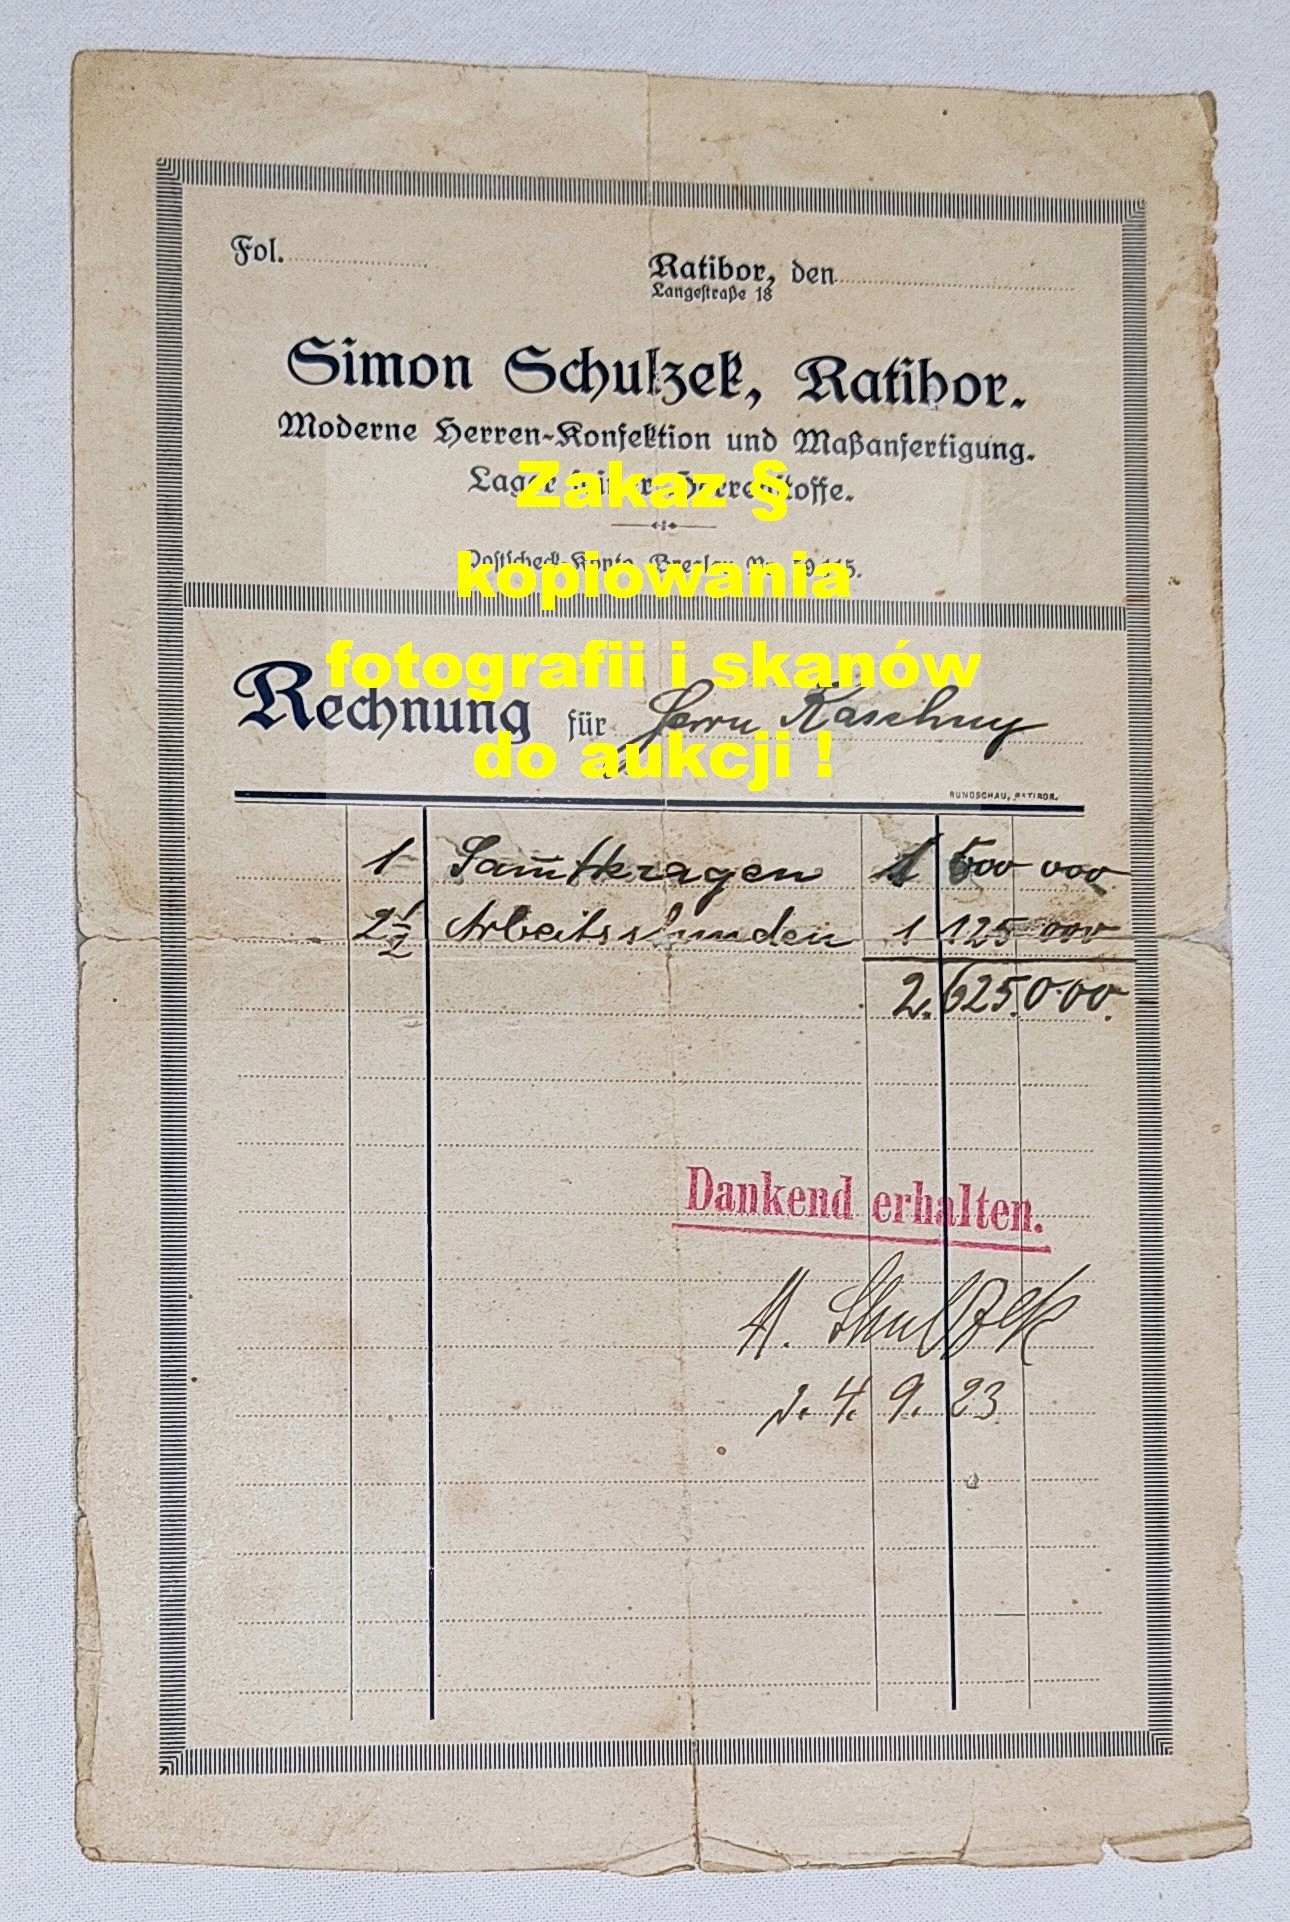 Fol.
Ratibor, den
Langestraße 18
Simon Schulzek, Ratibor.
Moderne Herren-Konfektion und Maßanfertigung.
Lager feiner Herrenstoffe.
Postscheck-Konto Breslau Nr.
Zakaz §
kopiowania
fotografii i skanów
do aukcji !
Rechnung für Herrn Kaschny
RUNDSCHAU, RATIBOR.
1 Sam̄tkragen 1 500 000
2 1/2 Arbeitsstunden 1 125 000
2.625.000.
Dankend erhalten.
A. Schulzek
d. 4. 9. 23